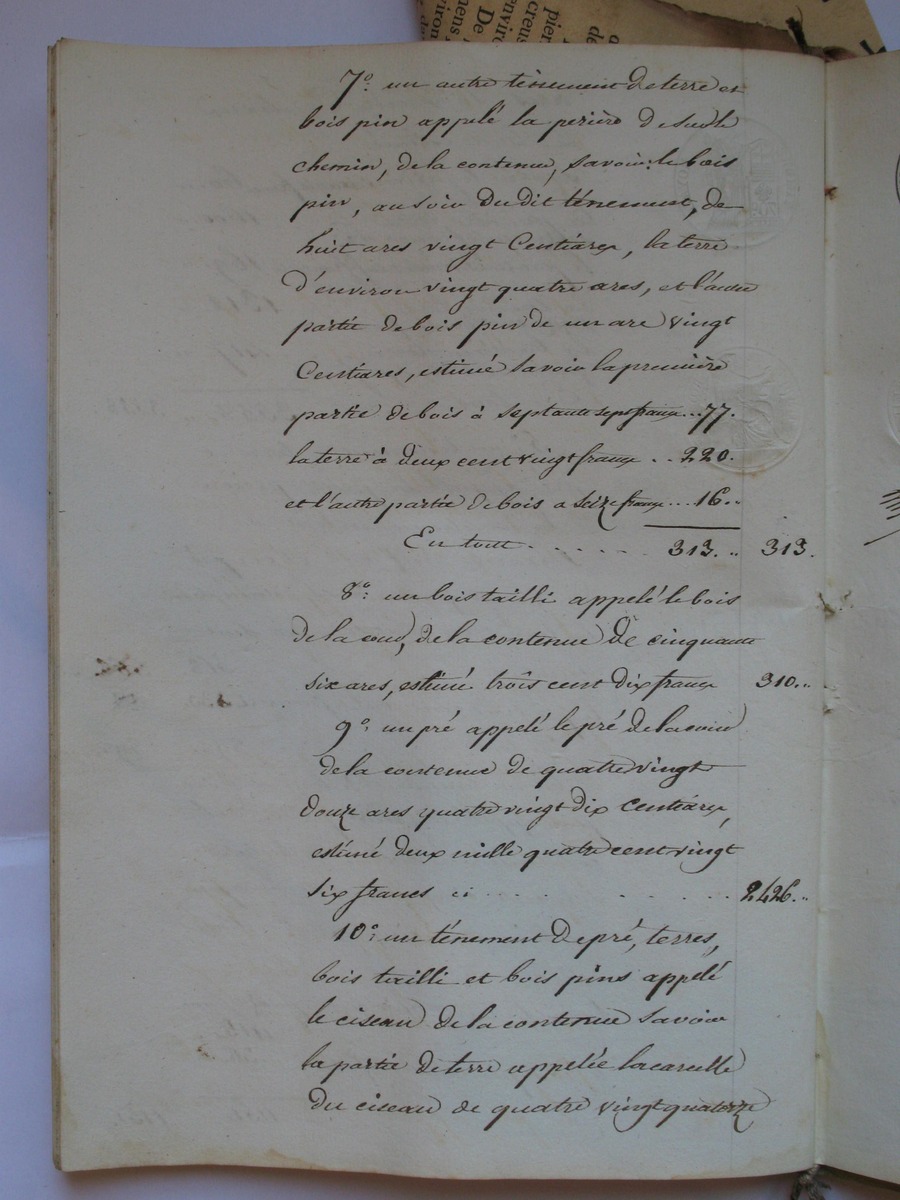 7°: un autre ténement de terre et
bois pin appelé la perière dessus le
chemin, de la contenue, savoir: le bois
pin, au soir du dit ténement, de
huit ares vingt Centiares, la terre
d'environ vingt quatre ares, et l'autre
partie de bois pin de un are vingt
Centiares, estimé savoir la première
partie de bois à septante sept francs...77.
la terre à deux cent vingt francs . . 220.
et l'autre partie de bois a seize francs ... 16..
En tout . . . . . . 313. .. 313.
8°: un bois tailli appelé le bois
de la de la contenue de cinquante
six ares, estimé trois cent dix francs 310...
9°: un pré appelé le pré de la
de la contenue de quatre vingt
douze ares quatre vingt dix Centiares,
estimé deux mille quatre cent vingt
six francs ci . . . . . . . . 2426...
10°: un ténement de pré, terres,
bois tailli et bois pins appelé
le ciseau de la contenue savoir
la partie de terre appelée
du ciseau de quatre vingt quatorze